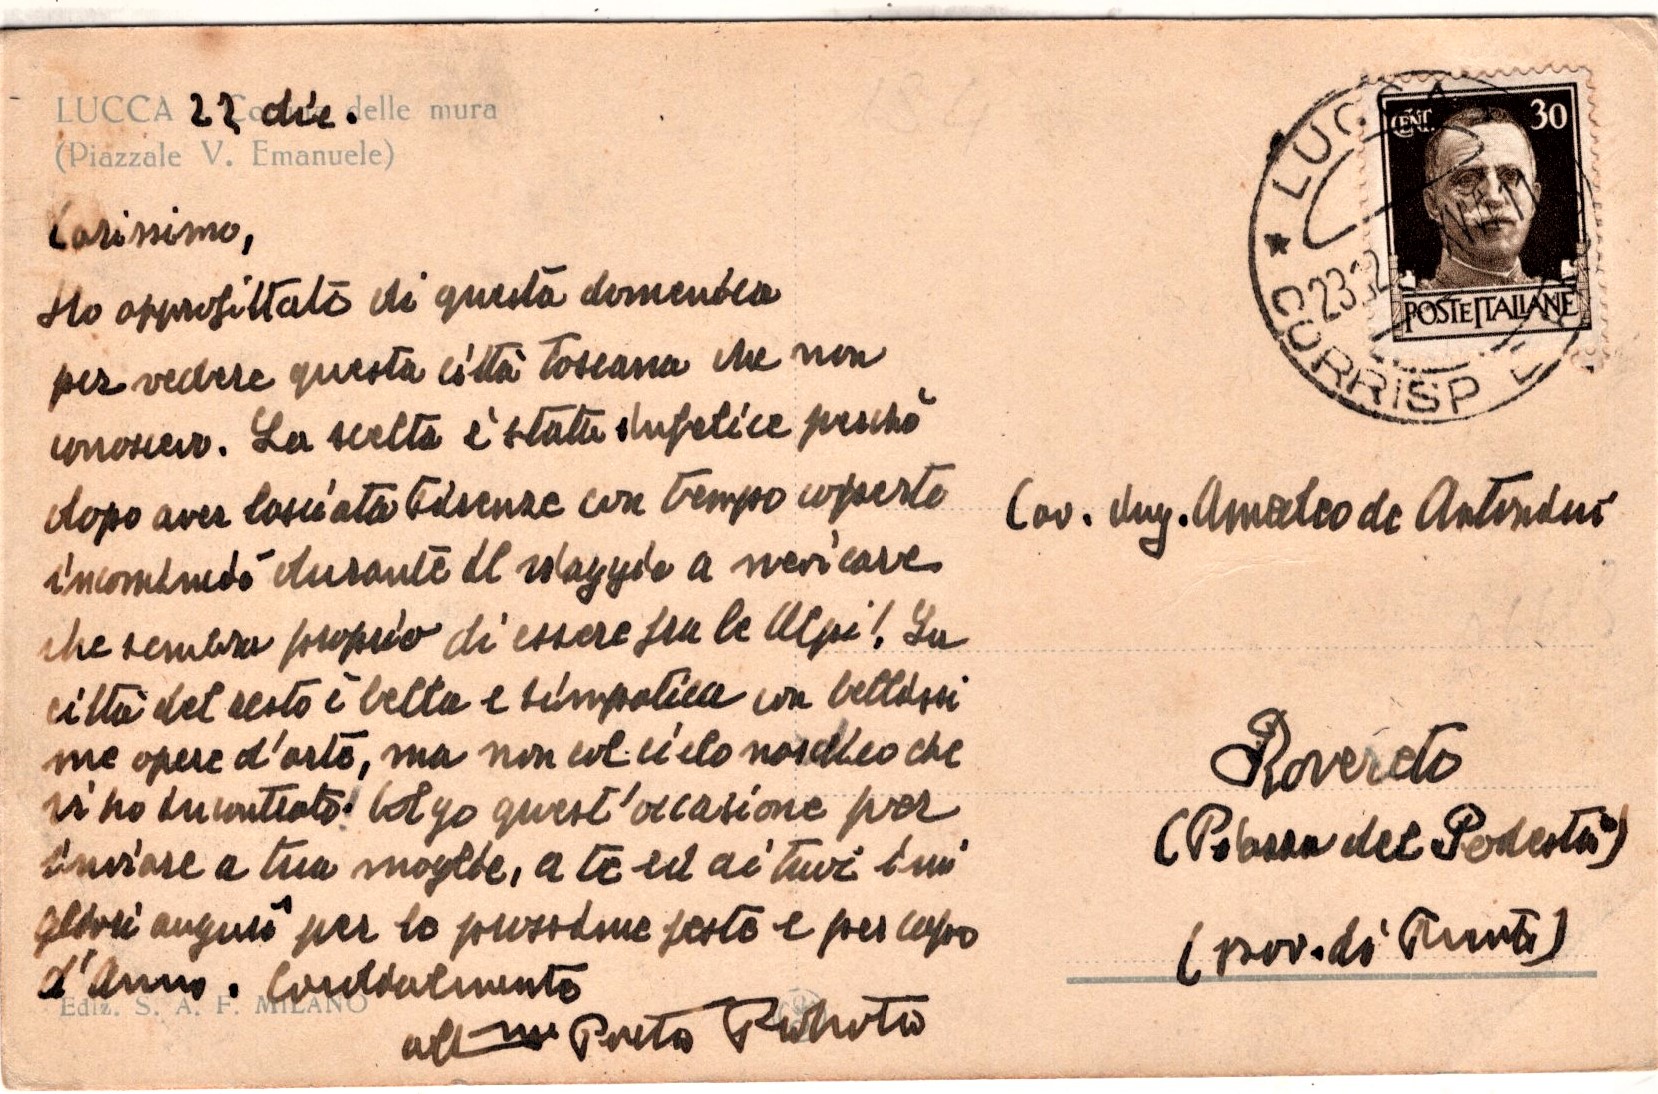 LUCCA delle mura
(Piazzale V. Emanuele)
22 dic.
Carissimo,
Ho approfittato di questa domenica
per vedere questa città toscana che non
conoscevo. La scelta è stata infelice perchè
dopo aver lasciata Firenze con tempo coperto
incominciò durante il viaggio a nevicare
che sembra proprio di essere fra le Alpi! La
città del resto è bella e simpatica con bellissi
me opere d'arte, ma non col cielo nordico che
vi ho incontrato! Colgo quest'occasione per
inviare a tua moglie, a te ed ai tuoi i mi
gliori auguri per le prossime feste e per capo
d'Anno. Cordialmente
Ediz. S. A. F. MILANO
CENT. 30
POSTE ITALIANE
LUCCA
CORRISP
23.12
Cav. Ing. Amedeo de Antonini
Rovereto
(Piazza del Podestà)
(prov. di Trento)